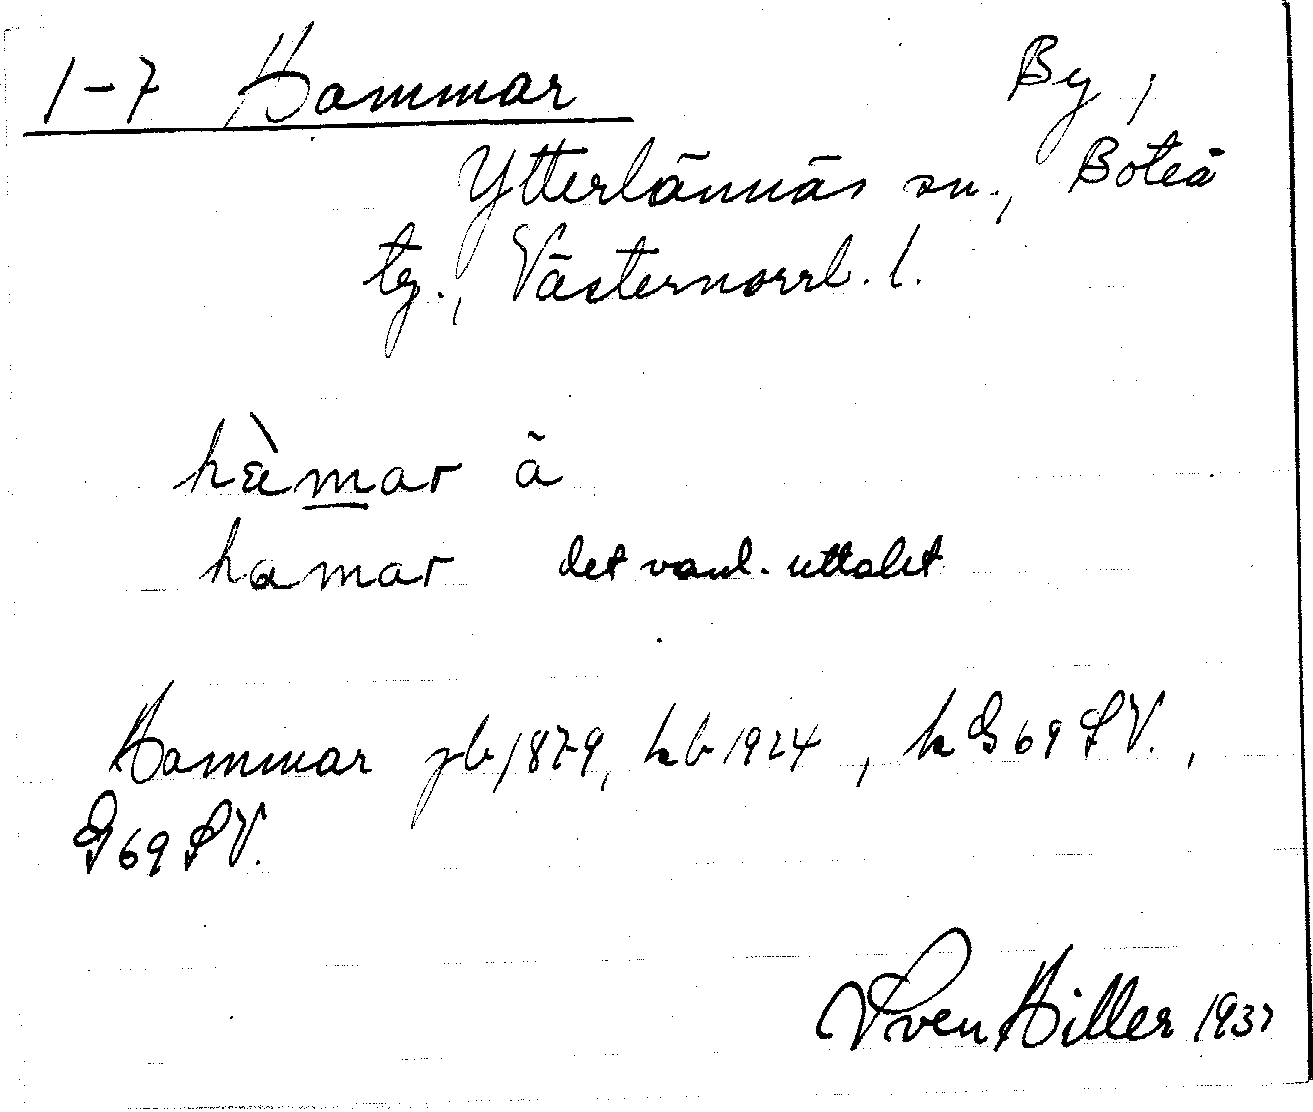 1-7 Hammar By,
Ytterlännäs sn., Boteå
tg., Västernorrl. l.
hàmar ã
hamar det vanl. uttalet
Hammar jb 1879, kb 1924, k G 69 SV.,
G 69 SV.
Sven Hiller 1937